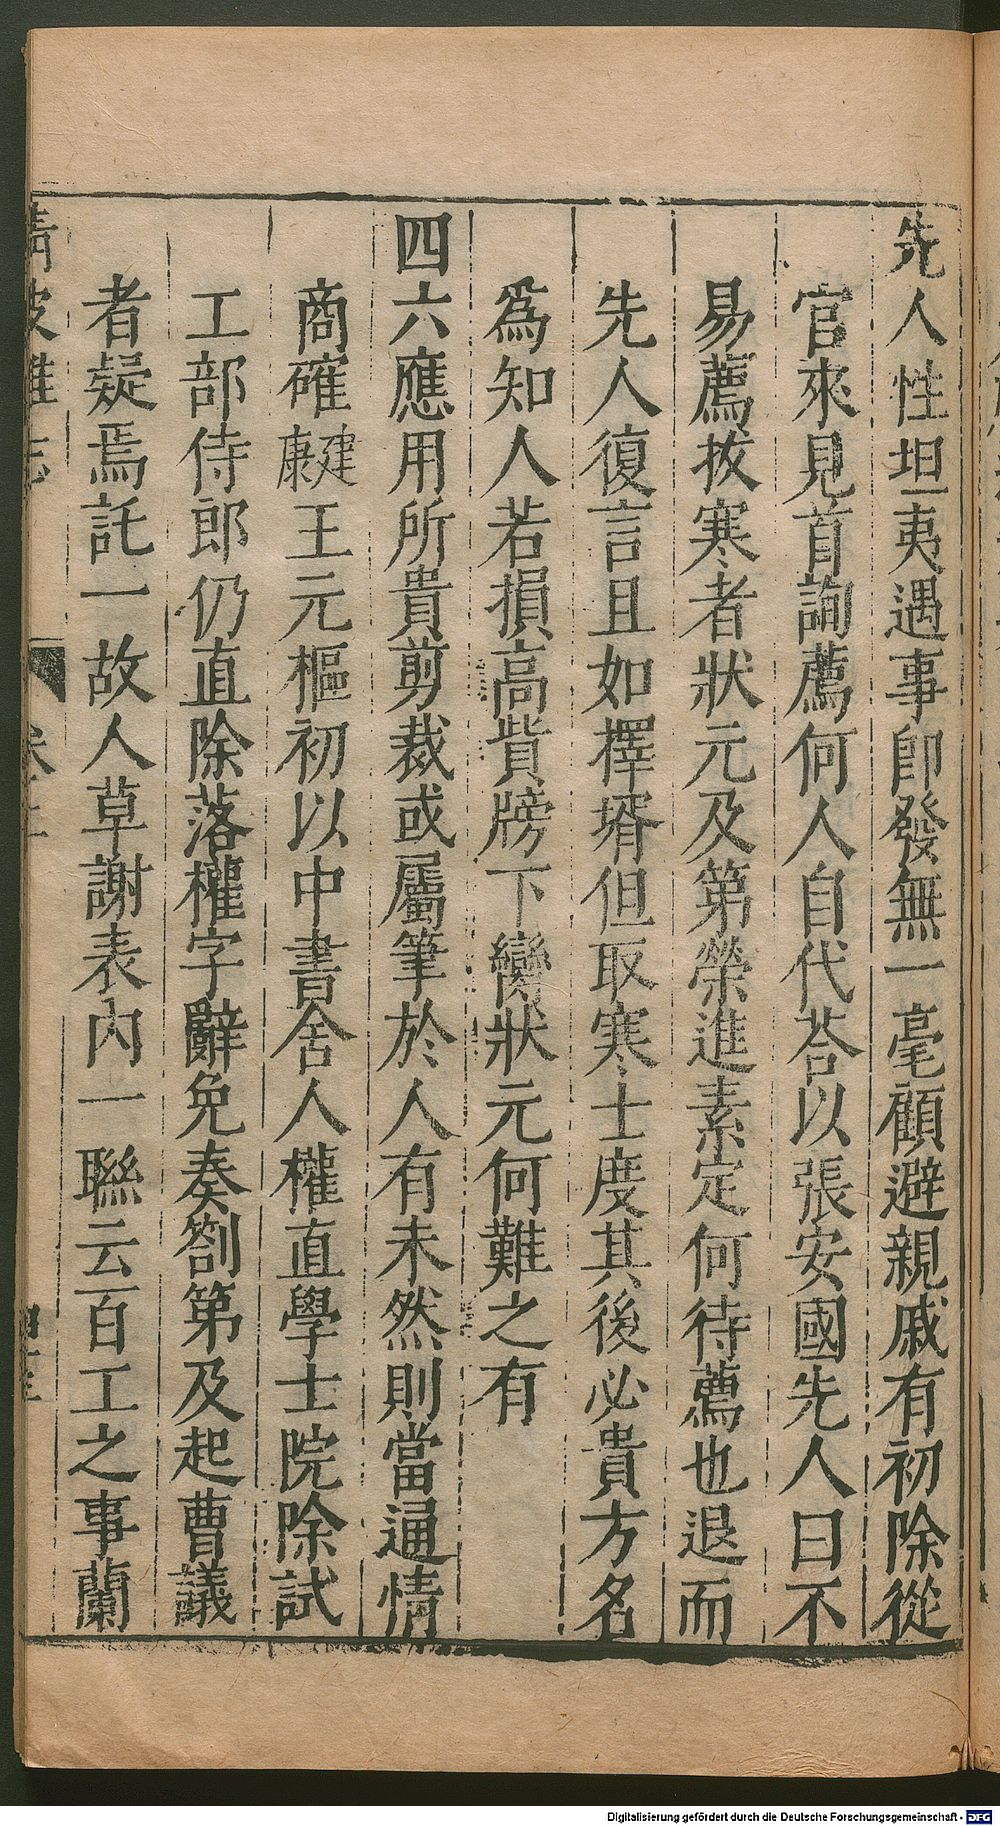 先人性坦夷遇事卽發無一毫顧避親戚有初除從
官來見首詢薦何人自代荅以張安國先人曰不
易薦拔寒者狀元及第榮進素定何待薦也退而
先人復言且如擇壻但取寒士度其後必貴方名
爲知人若損高貲牓下臠狀元何難之有
四六應用所貴剪裁或屬筆於人有未然則當通情
商確建康王元樞初以中書舍人權直學士院除試
工部侍郎仍直除落權字辭免奏劄第及起曹議
者疑焉託一故人草謝表內一聯云百工之事蘭
清波雜志
Digitalisierung gefördert durch die Deutsche Forschungsgemeinschaft - DFG